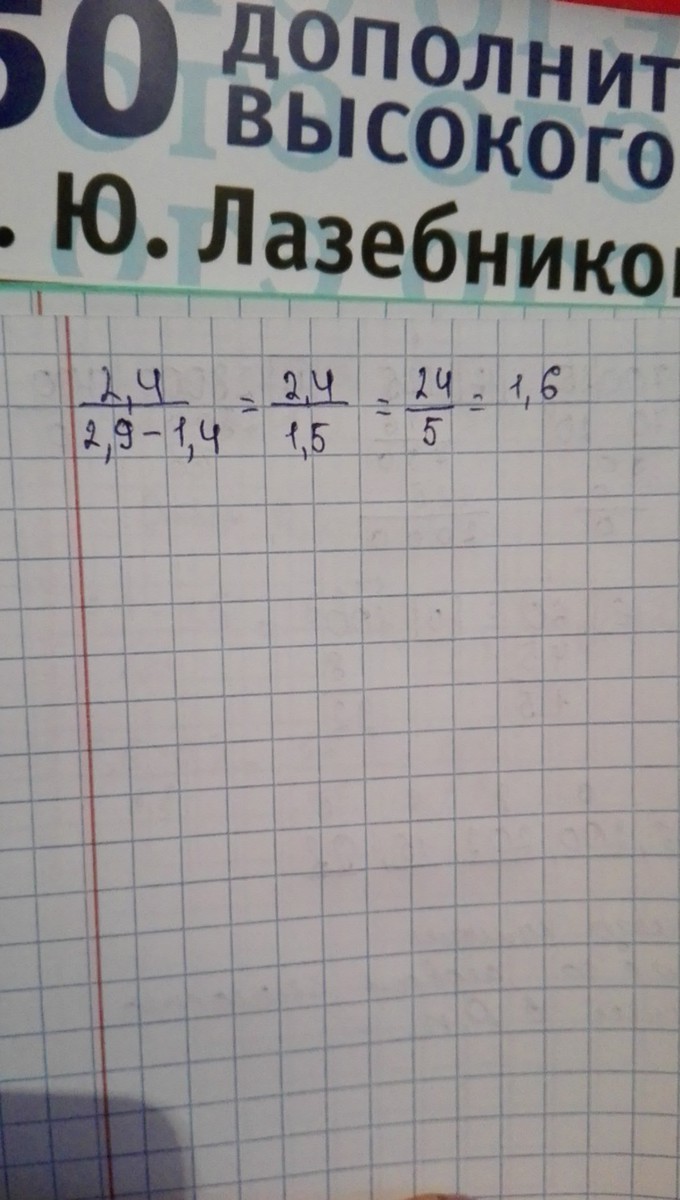 50 ДОПОЛНИТ
ВЫСОКОГО
. Ю. Лазебников
2,4/2,9-1,4 = 2,4/1,5 = 24/5 = 1,6